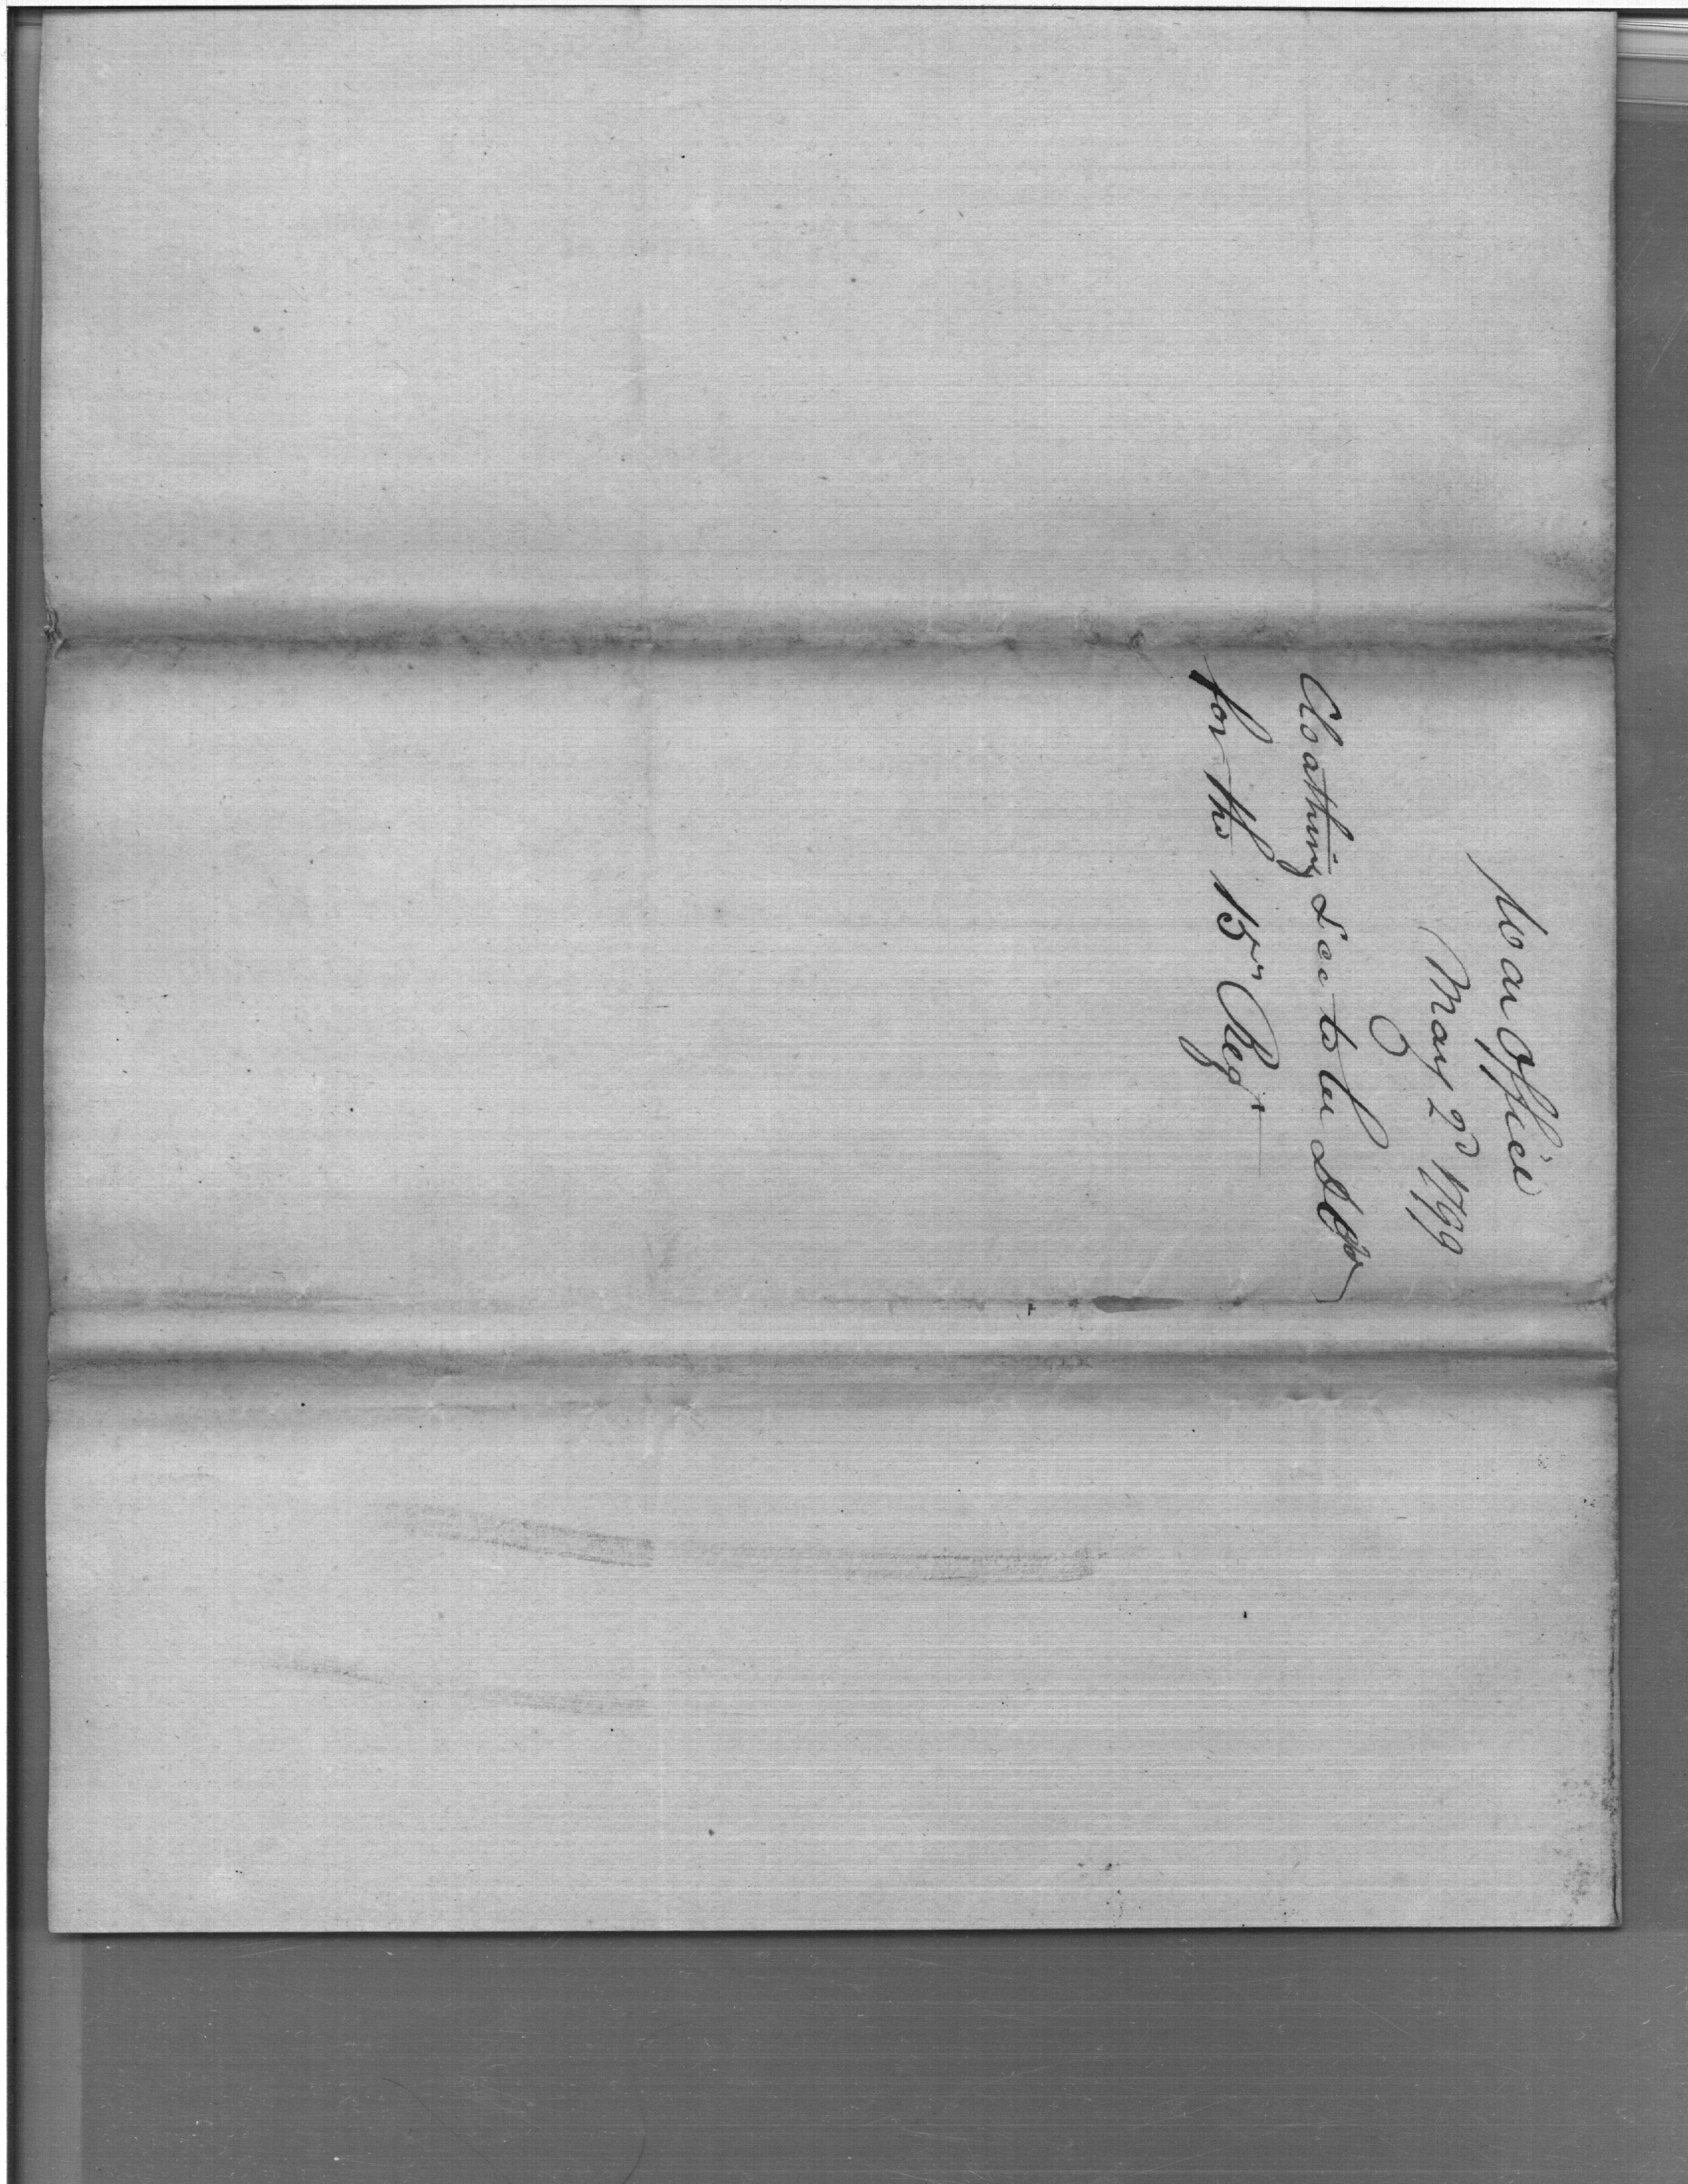 War Office
May 2d 1799
Cloathing &cc to be
for the 15th Regt